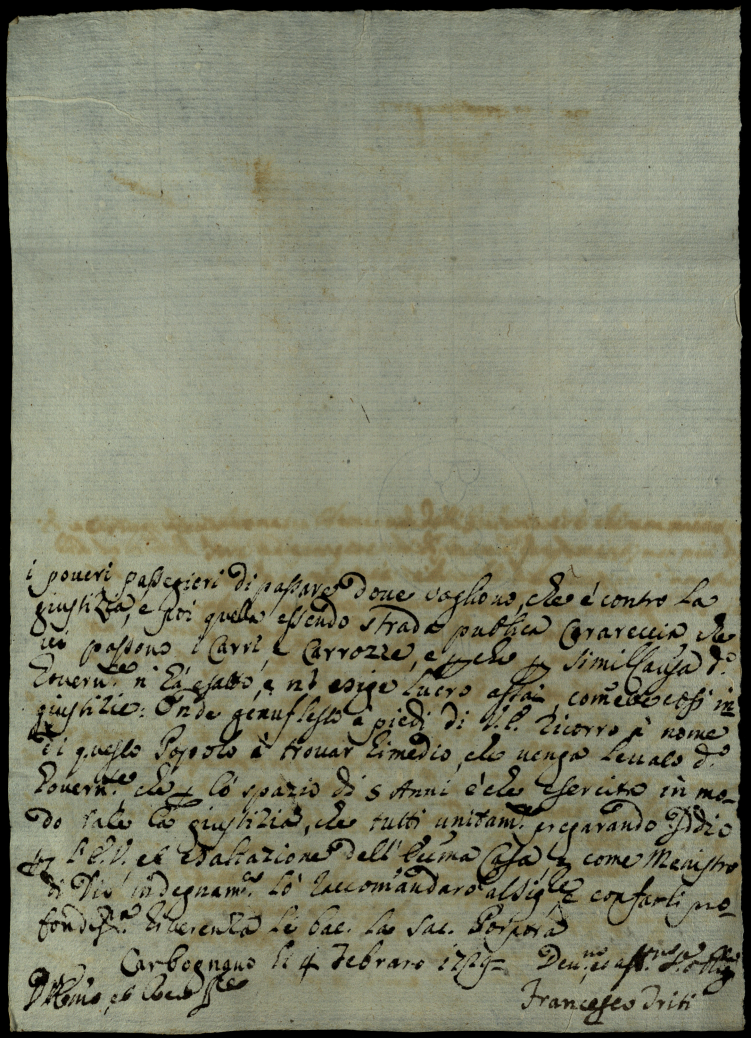 i poueri passegieri di passare doue uogliono, che é contro la
giustizia, e poi quella essendo strada publica Carareccia che
iui passono i Carri, e Carrozze, e p che p simil causa d.º
Gouern.re n' hà esatto, e né esige lucro assai, come di cosi in=
giustizie: Onde genuflesso à piedi di V.E. ricorro à nome
di questo Popolo à trouar rimedio, che uenga leuato d.º
Gouern.re che p lo spazio di 5 Anni é che esercita in mo=
do tale la giustizia, che tutti unitam.te pregarando Iddio
p l'E.V. et esaltazione dell' Ecc.ma Casa, e come Menistro
di Dio indegnam.te lo raccomandarò al Sig.re E con farli pro=
fondiss.ma riuerenza le bac. la sac. Porpora
Carbognano li 4 Febraro 1729= Deu.mo et
Francesco Triti